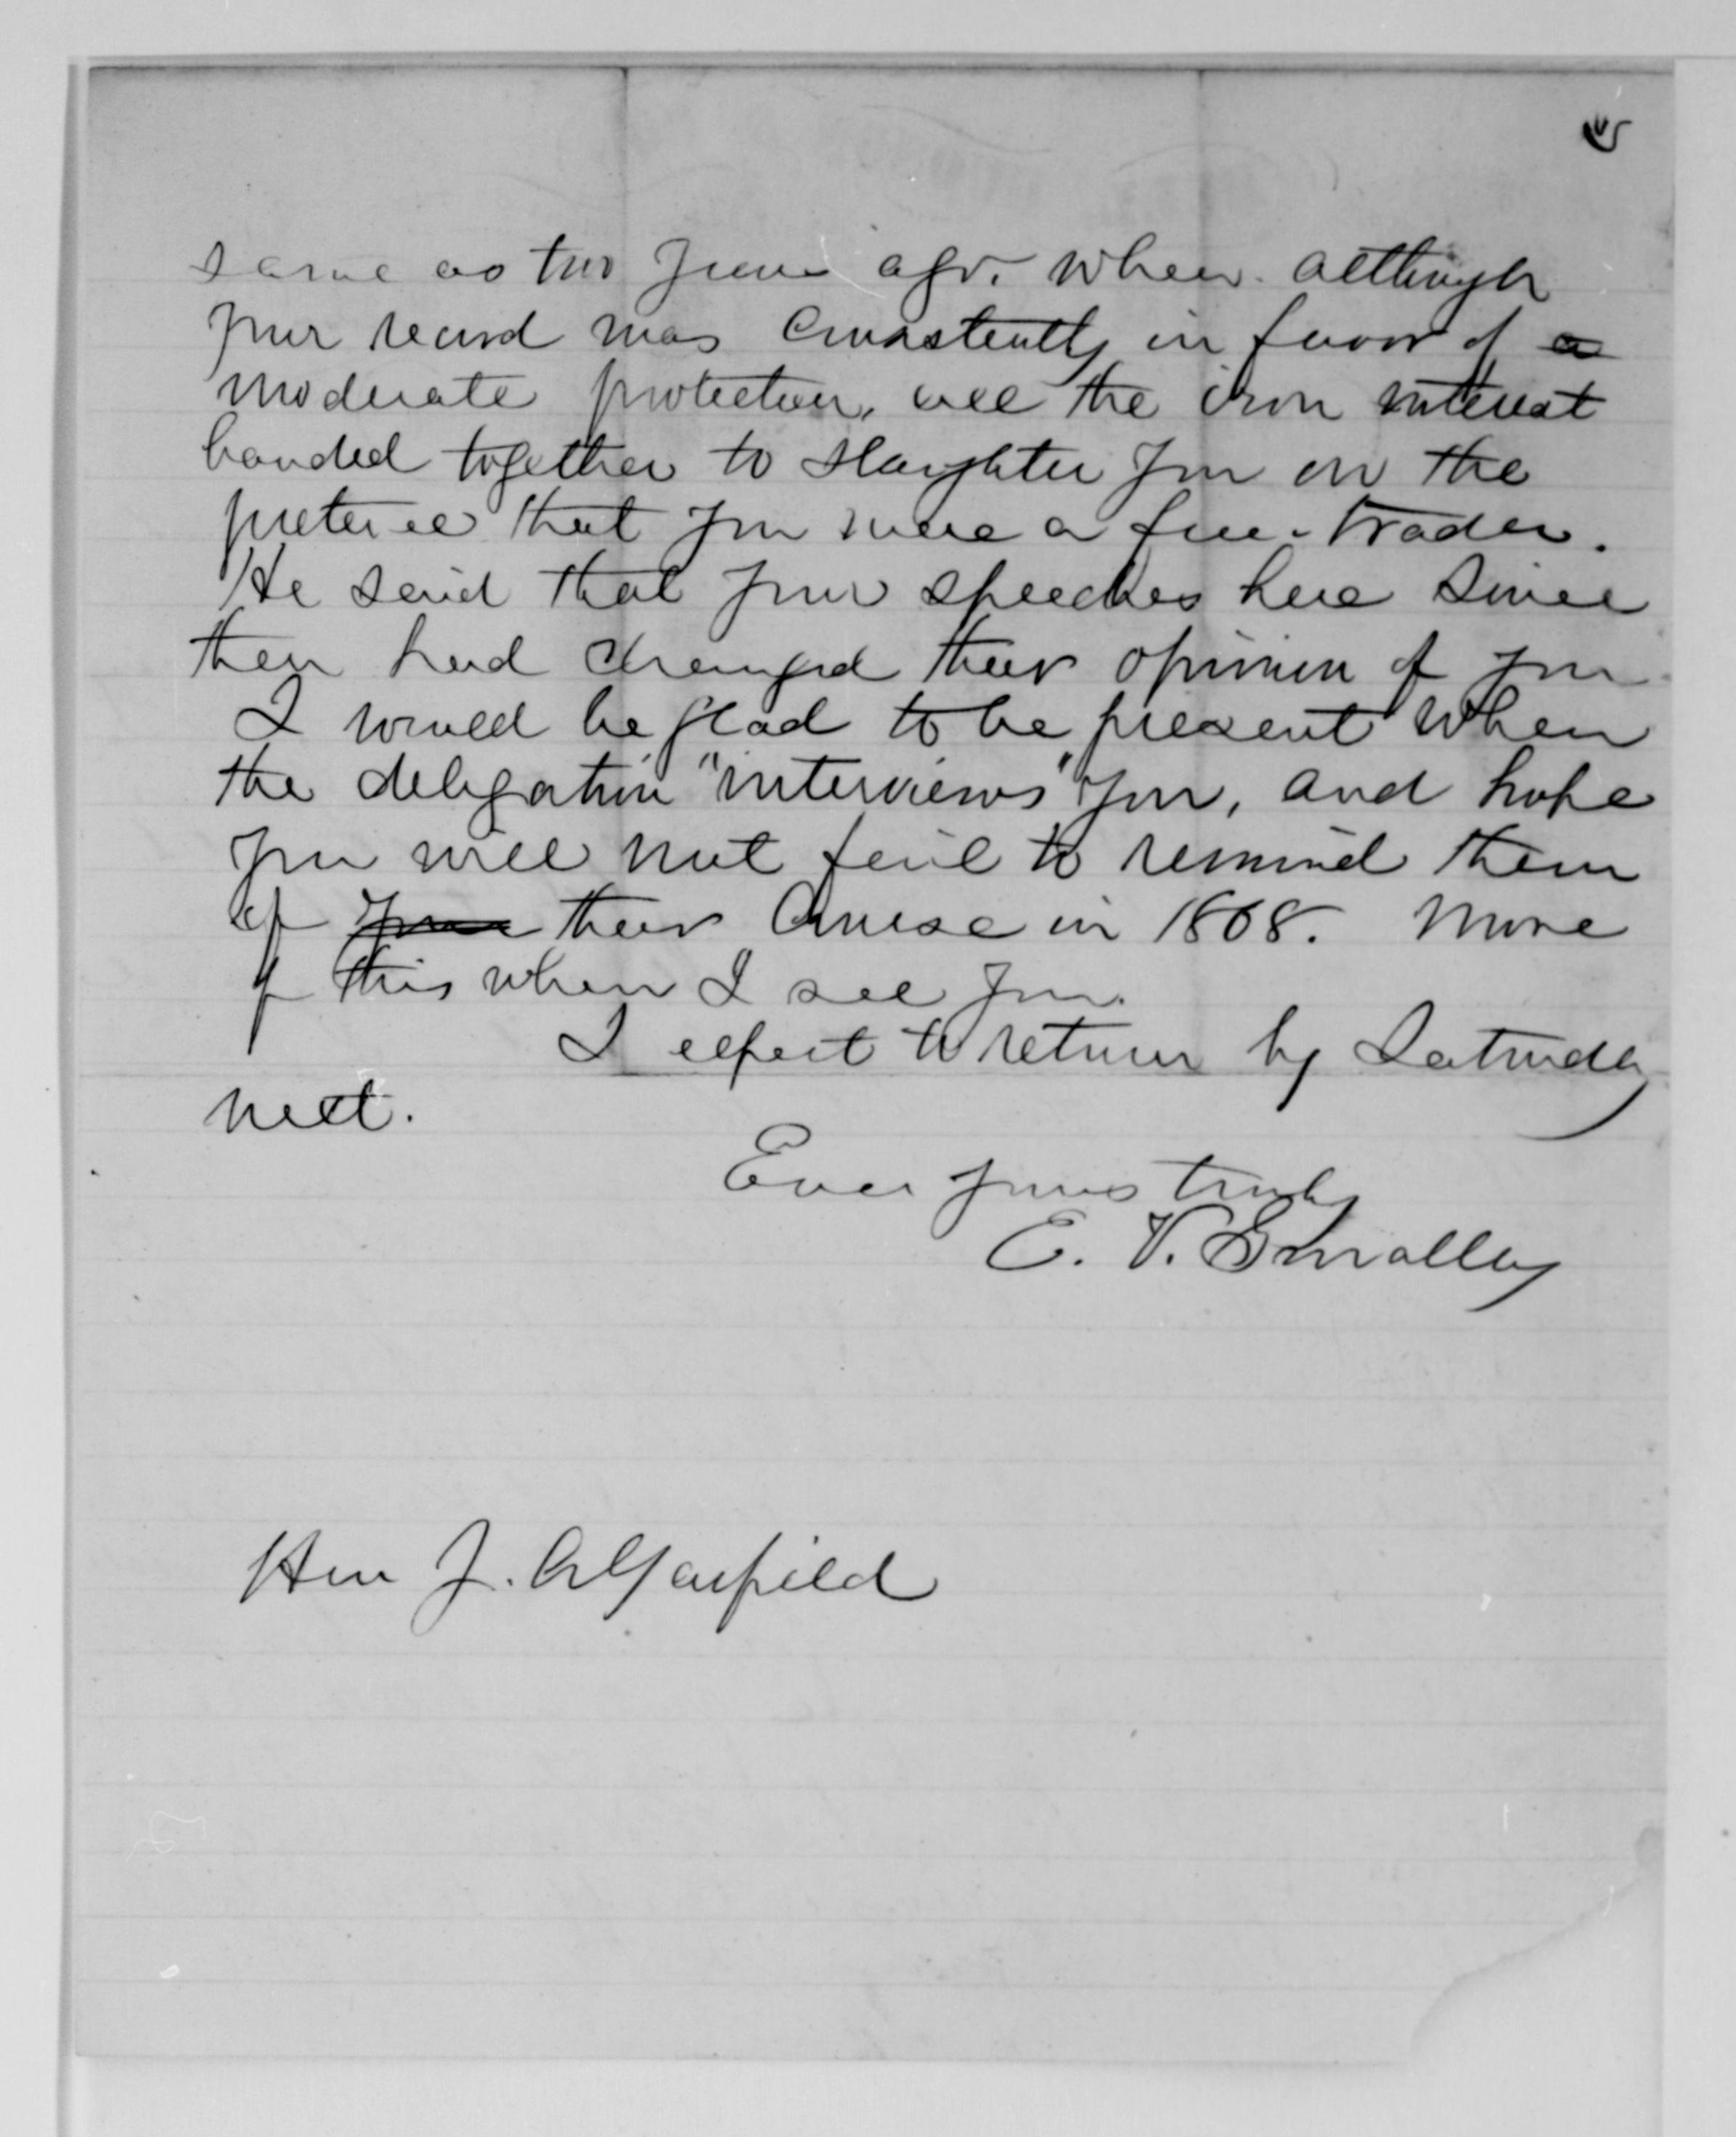 same as two years ago. when although
your record was consistently in favor of a
moderate protection, all the iron interest
banded together to slaughter you on the
pretense that you were a free-trader.
He said that your speeches here since
then had changed their opinion of you
I would be glad to be present when
the delegation "interviews" you, and hope
you will not fail to remind them
of your their course in 1868. More
of this when I see you.
I expect to return by Saturday
next.
Ever yours truly
E. V. Smalley
Hon J. A Garfield